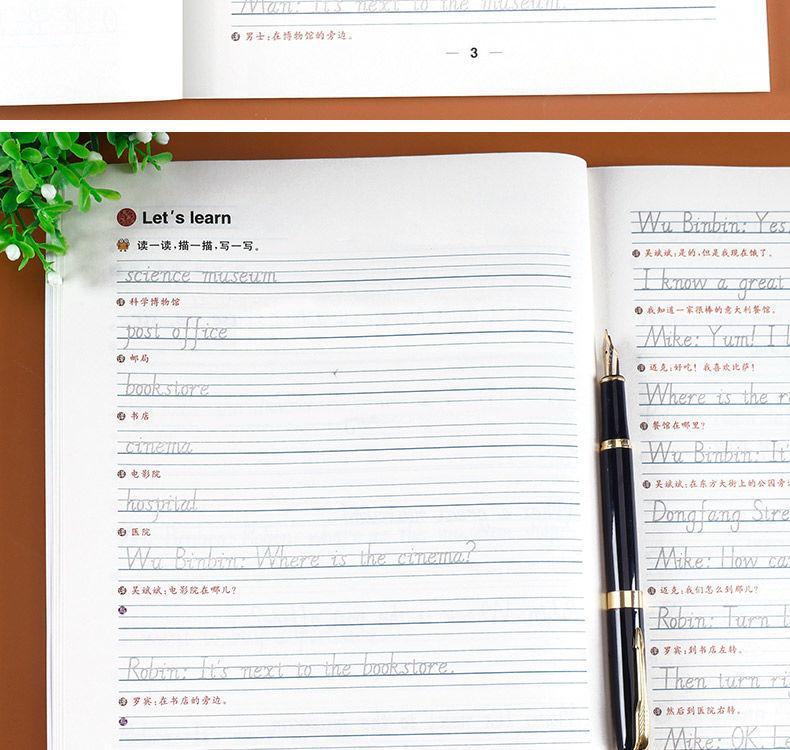 Man: It's next to the museum.
译 男士:在博物馆的旁边。
3
Let's learn
读一读,描一描,写一写。
science museum
译 科学博物馆
post office
译 邮局
bookstore
译 书店
cinema
译 电影院
hospital
译 医院
Wu Binbin: Where is the cinema?
译 吴斌斌:电影院在哪儿?
写
Robin: It's next to the bookstore.
译 罗宾:在书店的旁边。
写
Wu Binbin: Yes,
译 吴斌斌:是的,但是我现在饿了。
I know a great
译 我知道一家很棒的意大利餐馆。
Mike: Yum! I l
译 迈克:好吃!我喜欢比萨!
Where is the r
译 餐馆在哪里?
Wu Binbin: It'
译 吴斌斌:在东方大街上的公园旁
Dongfang Stre
Mike: How ca
译 迈克:我们怎么到那儿?
Robin: Turn l
译 罗宾:到书店左转。
Then turn ri
译 然后到医院右转。
Mike: OK. Le